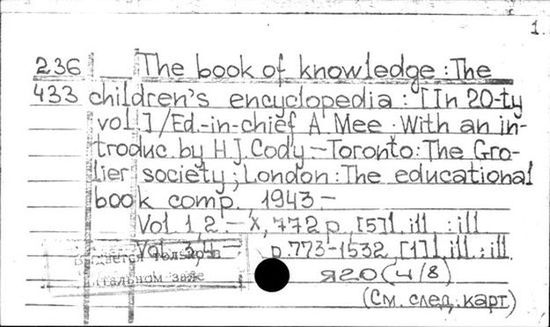 1.
236 The book of knowledge : The
433 children's encyclopedia : [In 20-ty
vol.] / Ed.-in-chief A. Mee. With an in-
troduc. by H.J. Cody. – Toronto: The Gro-
lier society; London: The educational
book comp. 1943 –
Vol. 1, 2. – X, 772 p., [5] l. ill. : ill.
Vol. 3, 4. p. 773-1532, [1] l. ill. : ill.
Выдается только в
читальном зале
Я20(4/8)
(См. след. карт.)